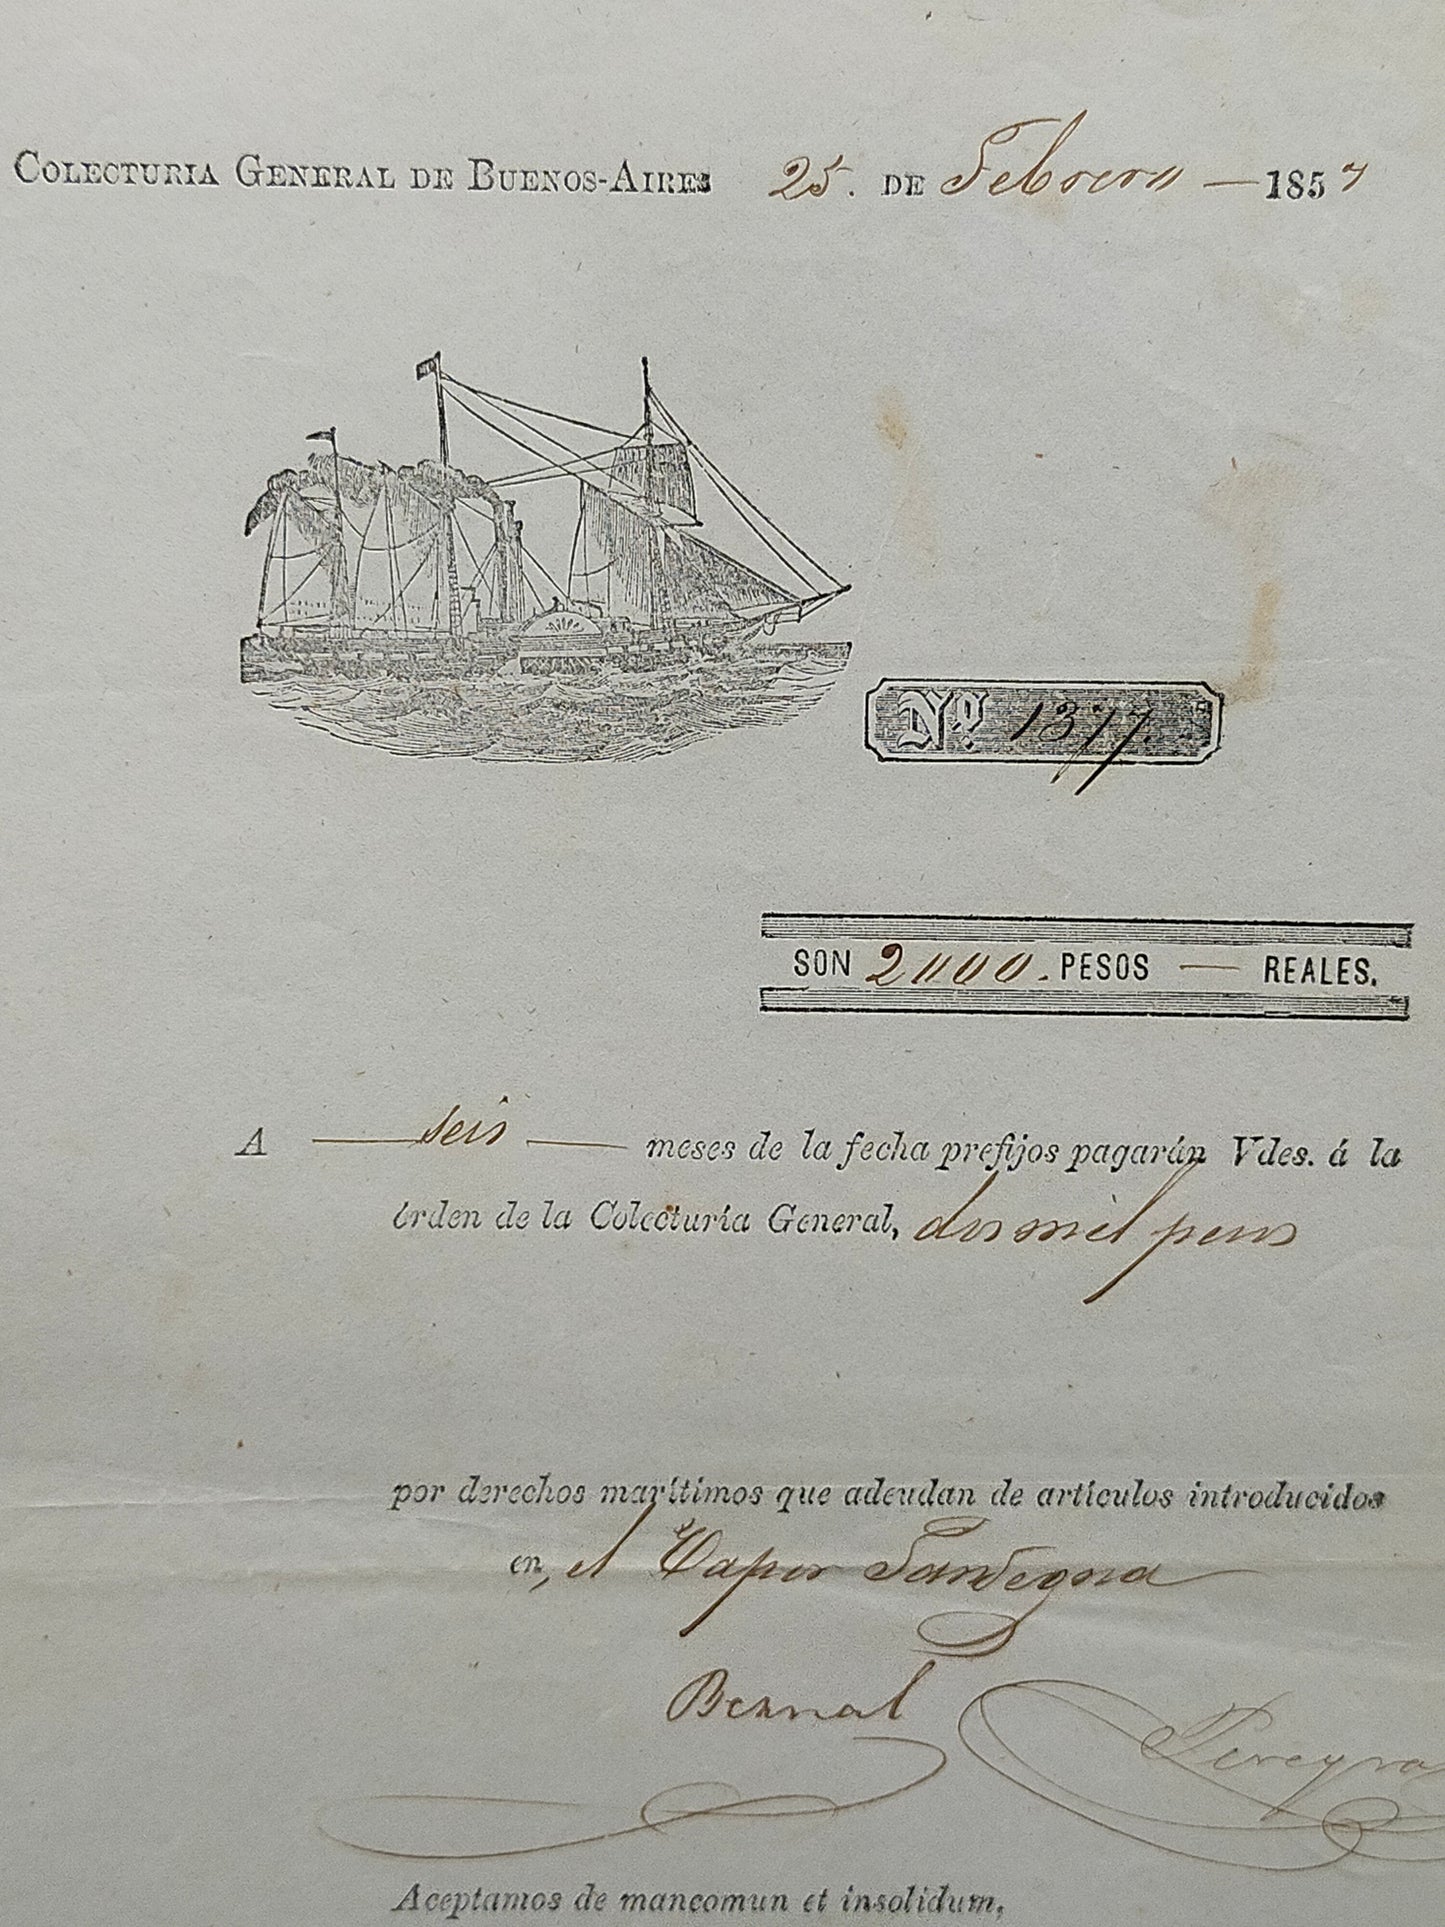 COLECTURIA GENERAL DE BUENOS-AIRES 25. DE Febrero — 1857
Nº 1377.
SON 2000. PESOS — REALES.
A — seis — meses de la fecha prefijos pagarán Vdes. á la
órden de la Colecturía General, dos mil pesos
por derechos marítimos que adeudan de artículos introducidos
en, el Vapor Sardegna
Bernal Pereyra
Aceptamos de mancomun et insolidum,